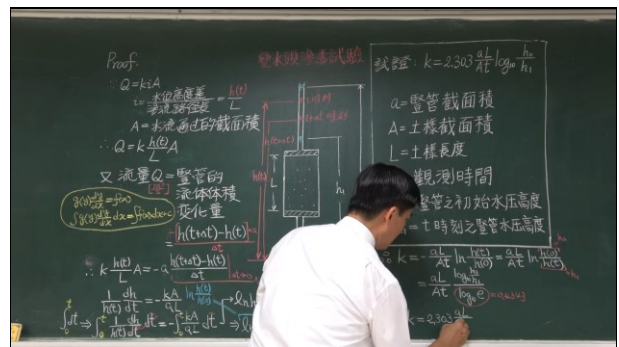 Proof:
∵ Q=kiA
i=水位高度差/滲流路徑長=h(t)/L
A=水流通过的截面積
∴ Q=k h(t)/L A
又 流量Q=豎管的
流体体積
变化量
g(y) dy/dx=f(x)
∫g(y) dy/dx dx=∫f(x)dx+c
= -[h(t+Δt)-h(t)]a/Δt
∴ k h(t)/L A=-a h(t+Δt)-h(t)/Δt
1/h(t) dh/dt=-kA/aL
∫dt ⇒ ∫1/h(t) dh/dt dt=-∫kA/aL dt
ln h(t)/h(0)
变水頭滲透試驗
h(t+Δt)
h(t)
L
h₁
試證: k=2.303 aL/At log₁₀ h₀/h₁
a=豎管截面積
A=土樣截面積
L=土樣長度
觀測時間
豎管之初始水压高度
t時刻之豎管水压高度
k=-aL/At ln h(t)/h(0)=aL/At ln h(0)/h(t)
=aL/At log₁₀ h₀/h₁/log₁₀ e
=0.4343
k=2.303 aL